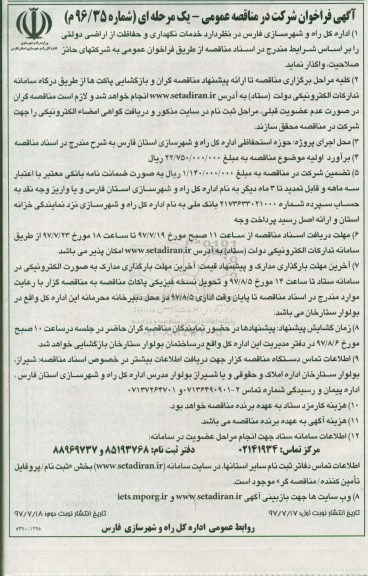 آگهی فراخوان شرکت در مناقصه عمومی - یک مرحله ای (شماره ۹۶/۳۵ م)
۱) اداره کل راه و شهرسازی فارس در نظردارد خدمات نگهداری و حفاظت از اراضی دولتی
را بر اساس شرایط مندرج در اسناد مناقصه از طریق فراخوان عمومی به شرکتهای حائز
صلاحیت، واگذار نماید.
۲) کلیه مراحل برگزاری مناقصه تا ارائه پیشنهاد مناقصه گران و بازگشایی پاکت ها از طریق درگاه سامانه
تدارکات الکترونیکی دولت (ستاد) به آدرس www.setadiran.ir انجام خواهد شد و لازم است مناقصه گران
در صورت عدم عضویت قبلی، مراحل ثبت نام در سایت مذکور و دریافت گواهی امضاء الکترونیکی را جهت
شرکت در مناقصه محقق سازند.
۳) محل اجرای پروژه: حوزه استحفاظی اداره کل راه و شهرسازی استان فارس به شرح مندرج در اسناد مناقصه
۴) برآورد اولیه موضوع مناقصه به مبلغ ۲۲/۷۵۰/۰۰۰/۰۰۰ ریال
۵) تضمین شرکت در مناقصه به مبلغ ۱/۱۴۰/۰۰۰/۰۰۰ ریال به صورت ضمانت نامه بانکی معتبر با اعتبار
سه ماهه و قابل تمدید تا ۳ ماه دیگر به نام اداره کل راه و شهرسازی استان فارس و یا واریز وجه نقد به
حساب سپرده شماره ۲۱۷۳۶۳۳۰۲۱۰۰۰ بانک ملی به نام اداره کل راه و شهرسازی نزد نمایندگی خزانه
استان و ارائه اصل رسید پرداخت وجه
۶) مهلت دریافت اسناد مناقصه از ساعت ۱۱ صبح مورخ ۹۷/۷/۱۹ تا ساعت ۱۸ مورخ ۹۷/۷/۲۳ از طریق
سامانه تدارکات الکترونیکی دولت (ستاد) به آدرس www.setadiran.ir امکان پذیر می باشد.
۷) آخرین مهلت بارگذاری مدارک و پیشنهاد قیمت: آخرین مهلت بارگذاری مدارک به صورت الکترونیکی در
سامانه ستاد تا ساعت ۱۴ مورخ ۹۷/۸/۵ و تحویل نسخه فیزیکی پاکات مناقصه به مناقصه گزار با رعایت
موارد مندرج در اسناد مناقصه تا پایان وقت اداری ۹۷/۸/۵ در محل دبیرخانه محرمانه این اداره کل واقع در
بولوار ستارخان می باشد.
۸) زمان گشایش پیشنهاد: پیشنهادها در حضور نمایندگان مناقصه گران حاضر در جلسه در ساعت ۱۰ صبح
مورخ ۹۷/۸/۶ در دفتر مدیریت این اداره کل واقع در ساختمان بولوار ستارخان بازگشایی خواهد شد.
۹) اطلاعات تماس دستگاه مناقصه گزار جهت دریافت اطلاعات بیشتر در خصوص اسناد مناقصه: شیراز،
بولوار ستارخان اداره املاک و حقوقی و یا شیراز بولوار مدرس اداره کل راه و شهرسازی استان فارس ،
اداره پیمان و رسیدگی شماره تماس ۲-۰۷۱۳۶۴۹۰۹۰۱ و ۰۷۱۳۷۲۶۴۷۰۱
۱۰) هزینه کارمزد ستاد به عهده برنده مناقصه خواهد بود.
۱۱) هزینه آگهی به عهده برنده مناقصه می باشد.
۱۲) اطلاعات سامانه ستاد جهت انجام مراحل عضویت در سامانه:
مرکز تماس: ۰۲۱۴۱۹۳۴ دفتر ثبت نام: ۸۵۱۹۳۷۶۸ و ۸۸۹۶۹۷۳۷
اطلاعات تماس دفاتر ثبت نام سایر استانها، در سایت سامانه (www.setadiran.ir) بخش «ثبت نام/پروفایل
تأمین کننده/مناقصه گر» موجود است.
۸) وب سایت ها جهت بازبینی آگهی www.setadiran.ir و iets.mporg.ir
تاریخ انتشار نوبت اول: ۹۷/۷/۱۷ تاریخ انتشار نوبت دوم: ۹۷/۷/۱۸
روابط عمومی اداره کل راه و شهرسازی فارس